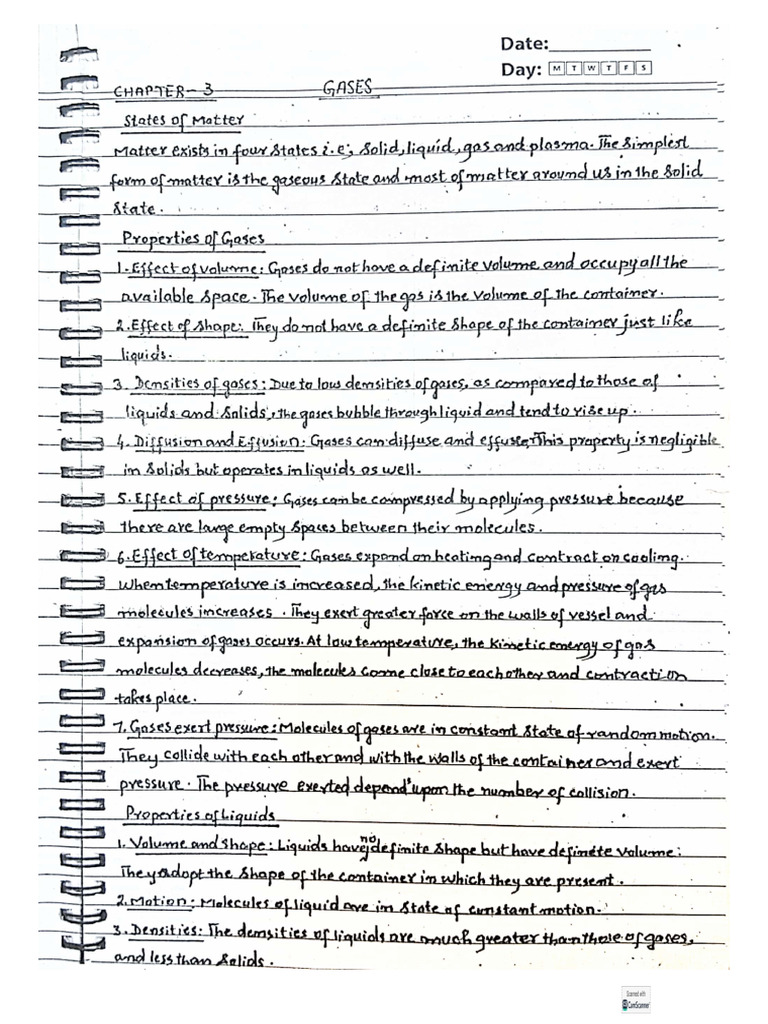 Date:
Day: M T W T F S
CHAPTER-3 GASES
States of Matter
Matter exists in four States i.e; Solid, liquid, gas and plasma. The Simplest
form of matter is the gaseous State and most of matter around us in the Solid
State.
Properties of Gases
1. Effect of volume: Gases do not have a definite volume and occupy all the
available Space. The volume of the gas is the volume of the container.
2. Effect of Shape: They do not have a definite Shape of the container just like
liquids.
3. Densities of gases: Due to low densities of gases, as compared to those of
liquids and Solids, the gases bubble through liquid and tend to rise up.
4. Diffusion and Effusion: Gases can diffuse and effuse. This property is negligible
in Solids but operates in liquids as well.
5. Effect of pressure: Gases can be compressed by applying pressure because
there are large empty Spaces between their molecules.
6. Effect of temperature: Gases expand on heating and contract on cooling.
When temperature is increased, the kinetic energy and pressure of gas
molecules increases. They exert greater force on the walls of vessel and
expansion of gases occurs. At low temperature, the kinetic energy of gas
molecules decreases, the molecules come close to each other and contraction
takes place.
7. Gases exert pressure: Molecules of gases are in constant State of random motion.
They Collide with each other and with the walls of the container and exert
pressure. The pressure exerted depend's upon the number of collision.
Properties of Liquids
1. Volume and Shape: Liquids have no definite Shape but have definite volume.
They adopt the Shape of the container in which they are present.
2. Motion: Molecules of liquid are in State of constant motion.
3. Densities: The densities of liquids are much greater than those of gases,
and less than Solids.
Scanned with
CamScanner